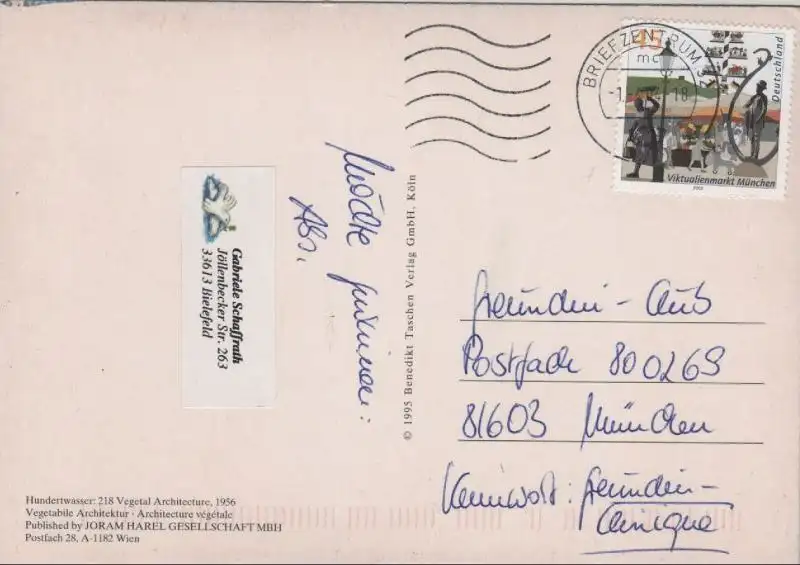 BRIEFZENTRUM 32
mc
18
45
Deutschland
Viktualienmarkt München
2003
Möchte gewinnen:
Abs.
Gabriele Schaffrath
Jöllenbecker Str. 263
33613 Bielefeld
© 1995 Benedikt Taschen Verlag GmbH, Köln
freundin - Club
Postfach 800269
81603 München
Kennwort: freundin-
Clinique
Hundertwasser: 218 Vegetal Architecture, 1956
Vegetabile Architektur · Architecture végétale
Published by JORAM HAREL GESELLSCHAFT MBH
Postfach 28, A-1182 Wien